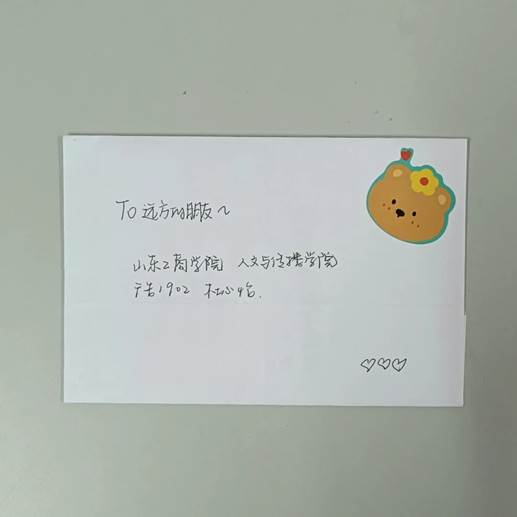 To 远方的朋友~
山东工商学院 人文与传播学院
广告1902 杜心怡.